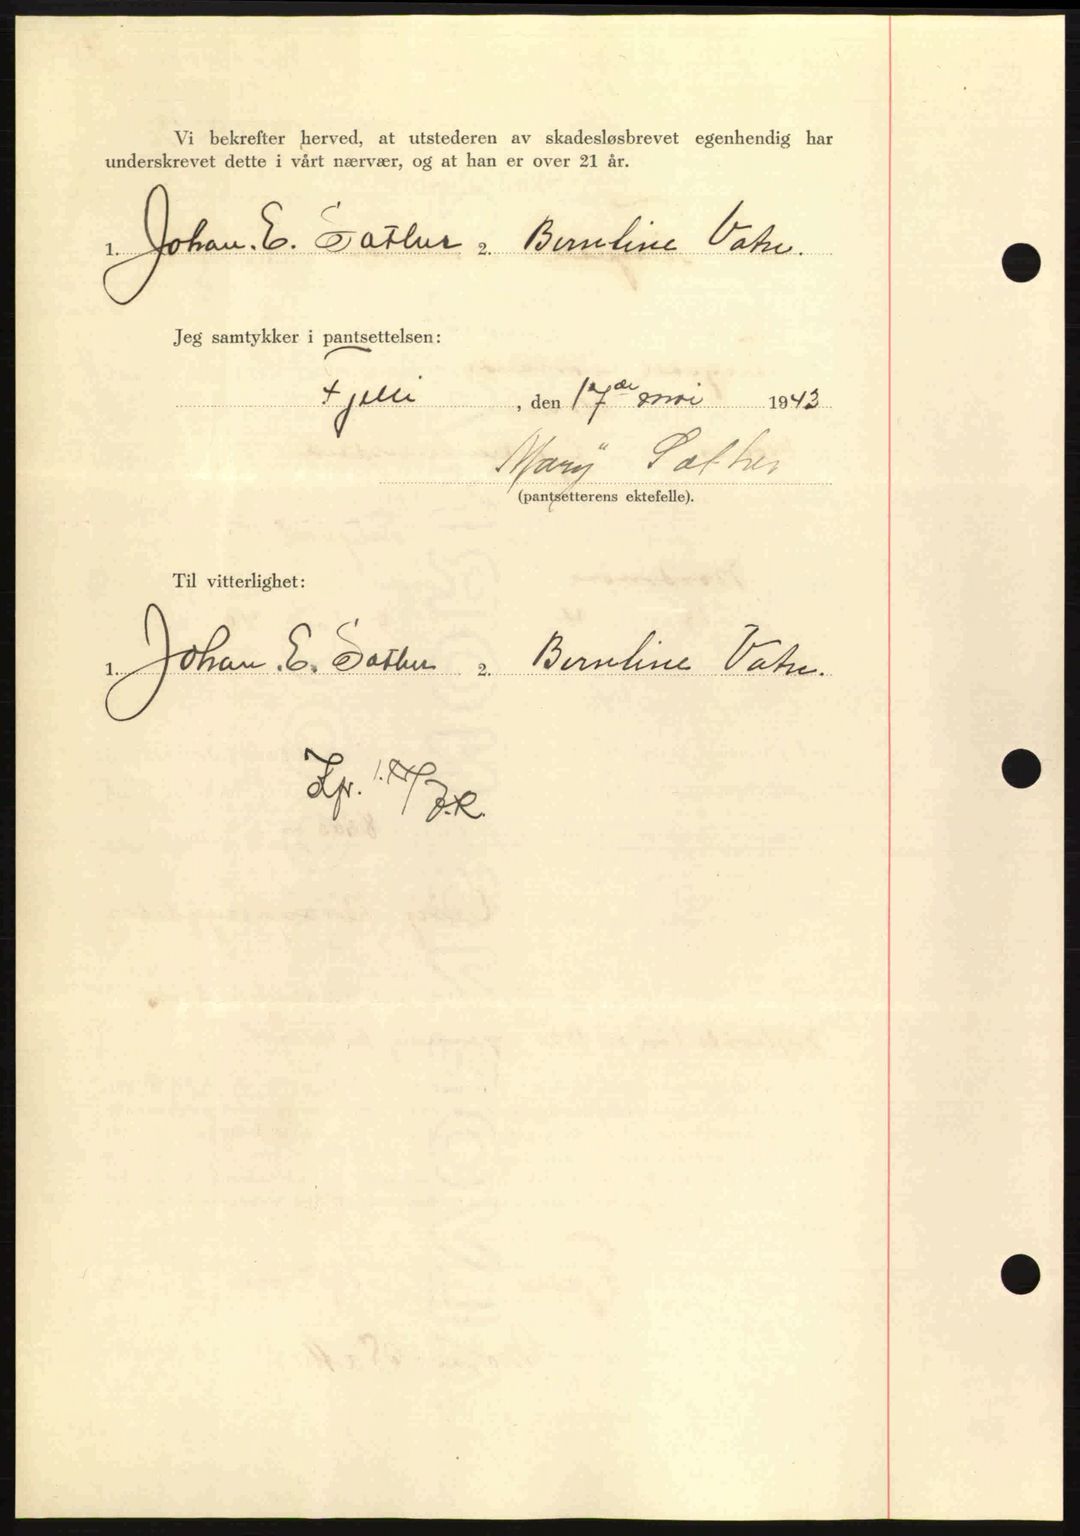 Vi bekrefter herved, at utstederen av skadesløsbrevet egenhendig har
underskrevet dette i vårt nærvær, og at han er over 21 år.
1. Johan. E. Sæther 2. Berneline Vatn.
Jeg samtykker i pantsettelsen:
, den 17de mai 1943
Mary Sæther
(pantsetterens ektefelle).
Til vitterlighet:
1. Johan. E. Sæther 2. Berneline Vatn.